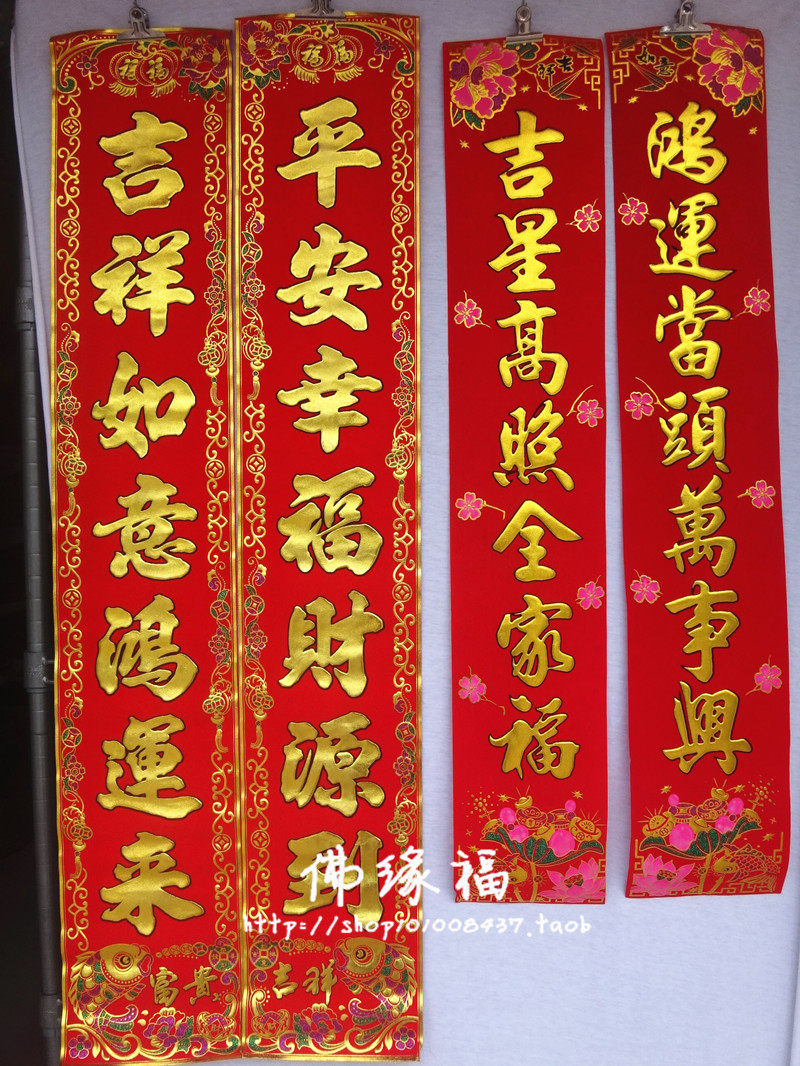 福福
吉祥如意鴻運来
富貴
福福
平安幸福財源到
吉祥
吉祥
吉星高照全家福
如意
鴻運當頭萬事興
佛缘福
http://shop101008437.taob